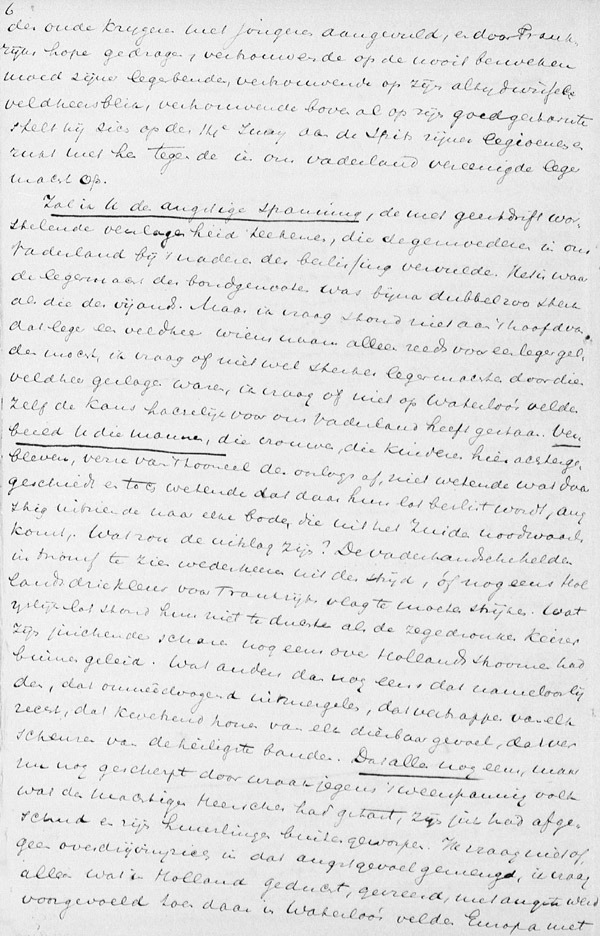 6
der oude krygers met jongeren aangevuld, en door Frankr
zijns hope gedragen, vertrouwende op de nooit bezweken
moed zijner legerbenden, vertrouwende op zijn altyd
veldheersblik, vertrouwende boven al op zijn goed gesternte
stelt hij zich op den 14e Juny aan de spits zijner legioenen en
rukt met hen tegen de in ons vaderland vereenigde leger
macht op.
Zal ik U de angstige spanning, de met geestdrift wor
stelende verslagenheid teekenen, die degemoederen in ons
Vaderland bij 't naderen der beslissing vervulde. Het is waar
de legermacht der bondgenooten was bijna dubbel zoo sterk
als die des vijands. Maar ik vraag stond niet aan 't hoofd van
dat leger een veldheer wiens naam alleen reeds voor een leger gel
den mocht, ik vraag of niet wel sterker legermachten door dien
veldheer geslagen waren, ik vraag of niet op Waterloo's velden
zelf de kans hachelijk voor ons Vaderland heeft gestaan. Ver
beeld U die mannen, die vrouwen, die kinderen hier achterge
bleven, verre van 't tooneel des oorlogs af, niet wetende wat daar
geschiedt en toch wetende dat daar hun lot beslist wordt, ang
stig uitziende naar elken bode, die uit het Zuiden noordwaarts
komt. Wat zou de uitslag zijn? De vaderlandsche helden
in triomf te zien wederkeeren uit den strijd, óf nog eens Hol
lands driekleur voor Frankrijks vlag te moeten strijken. Wat
yslijk lot stond hun niet te duchten als de zegedronken Keizer
zijn juichende scharen nog eens over Hollands stroomen had
binnen geleid. Wat anders dan nog eens dat nameloos lij
den, dat onmeedoogend uitmergelen, dat vertrappen van elk
recht, dat krenkend honen van elk dierbaar gevoel, dat ver
scheuren van de heiligste banden. Dat alles nog eens, maar
nu nog gescherpt door wraak jegens 't weerspannig volk
wat den machtigen Heerscher had getart, zijn juk had afge
schud en zijn huurlingen buitengeworpen. Ik vraag niet of
geen overdrijving zich in dat angstgevoel gemengd, ik vraag
alleen wat in Holland geducht, gevreesd, met angst werd
voorgevoeld toen daar in Waterloo's velden Europa met